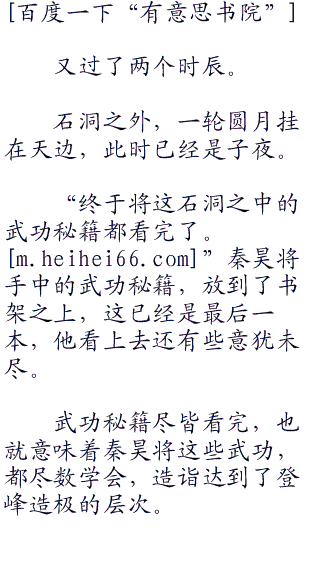 [百度一下“有意思书院”]
又过了两个时辰。
石洞之外，一轮圆月挂
在天边，此时已经是子夜。
“终于将这石洞之中的
武功秘籍都看完了。
[m.heihei66.com]”秦昊将
手中的武功秘籍，放到了书
架之上，这已经是最后一
本，他看上去还有些意犹未
尽。
武功秘籍尽皆看完，也
就意味着秦昊将这些武功，
都尽数学会，造诣达到了登
峰造极的层次。